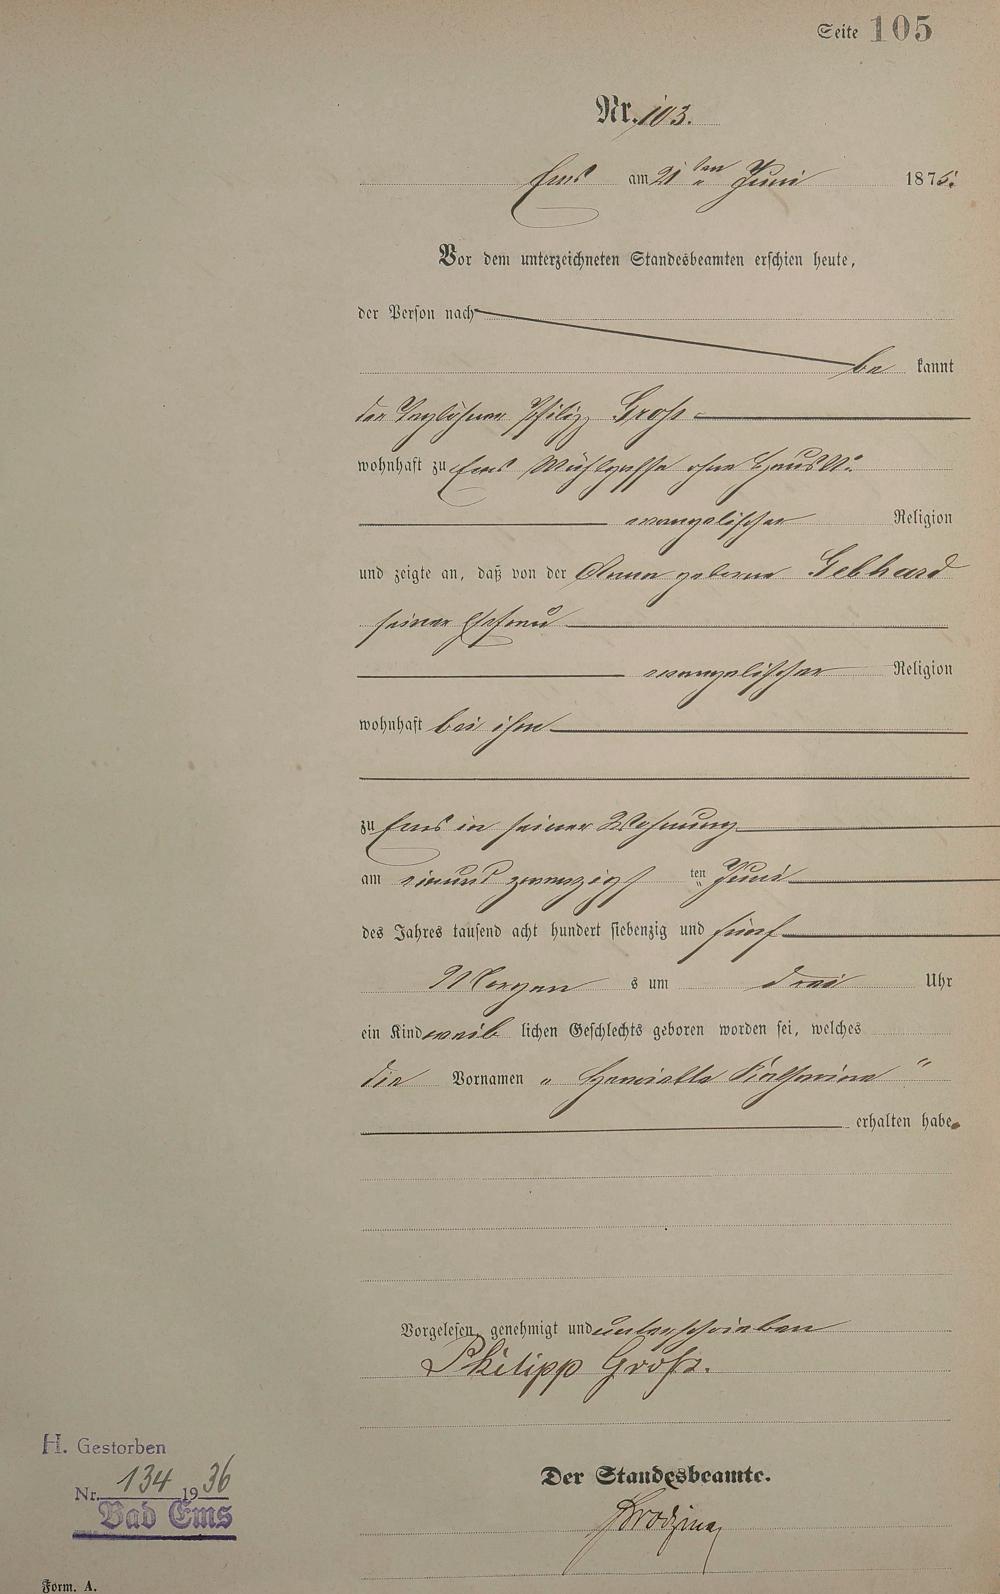 Seite 105
Nr. 103.
Ems am 21ten Juni 1875.
Vor dem unterzeichneten Standesbeamten erschien heute,
der Person nach
be kannt
der Taglöhner Philipp Groß
wohnhaft zu Ems Mühlgasse ohne Haus No.
evangelischer Religion
und zeigte an, daß von der Anna geborene Gebhard
seiner Ehefrau
evangelischer Religion
wohnhaft bei ihm
zu Ems in seiner Wohnung
am einund zwanzigs ten Juni
des Jahres tausend acht hundert siebenzig und fünf
Morgen s um drei Uhr
ein Kind weib lichen Geschlechts geboren worden sei, welches
die Vornamen „ Henriette Katharina “
erhalten habe.
Vorgelesen, genehmigt und unterschrieben
Philipp Groß.
H. Gestorben
Nr. 134 1936
Bad Ems
Der Standesbeamte.
Form. A.